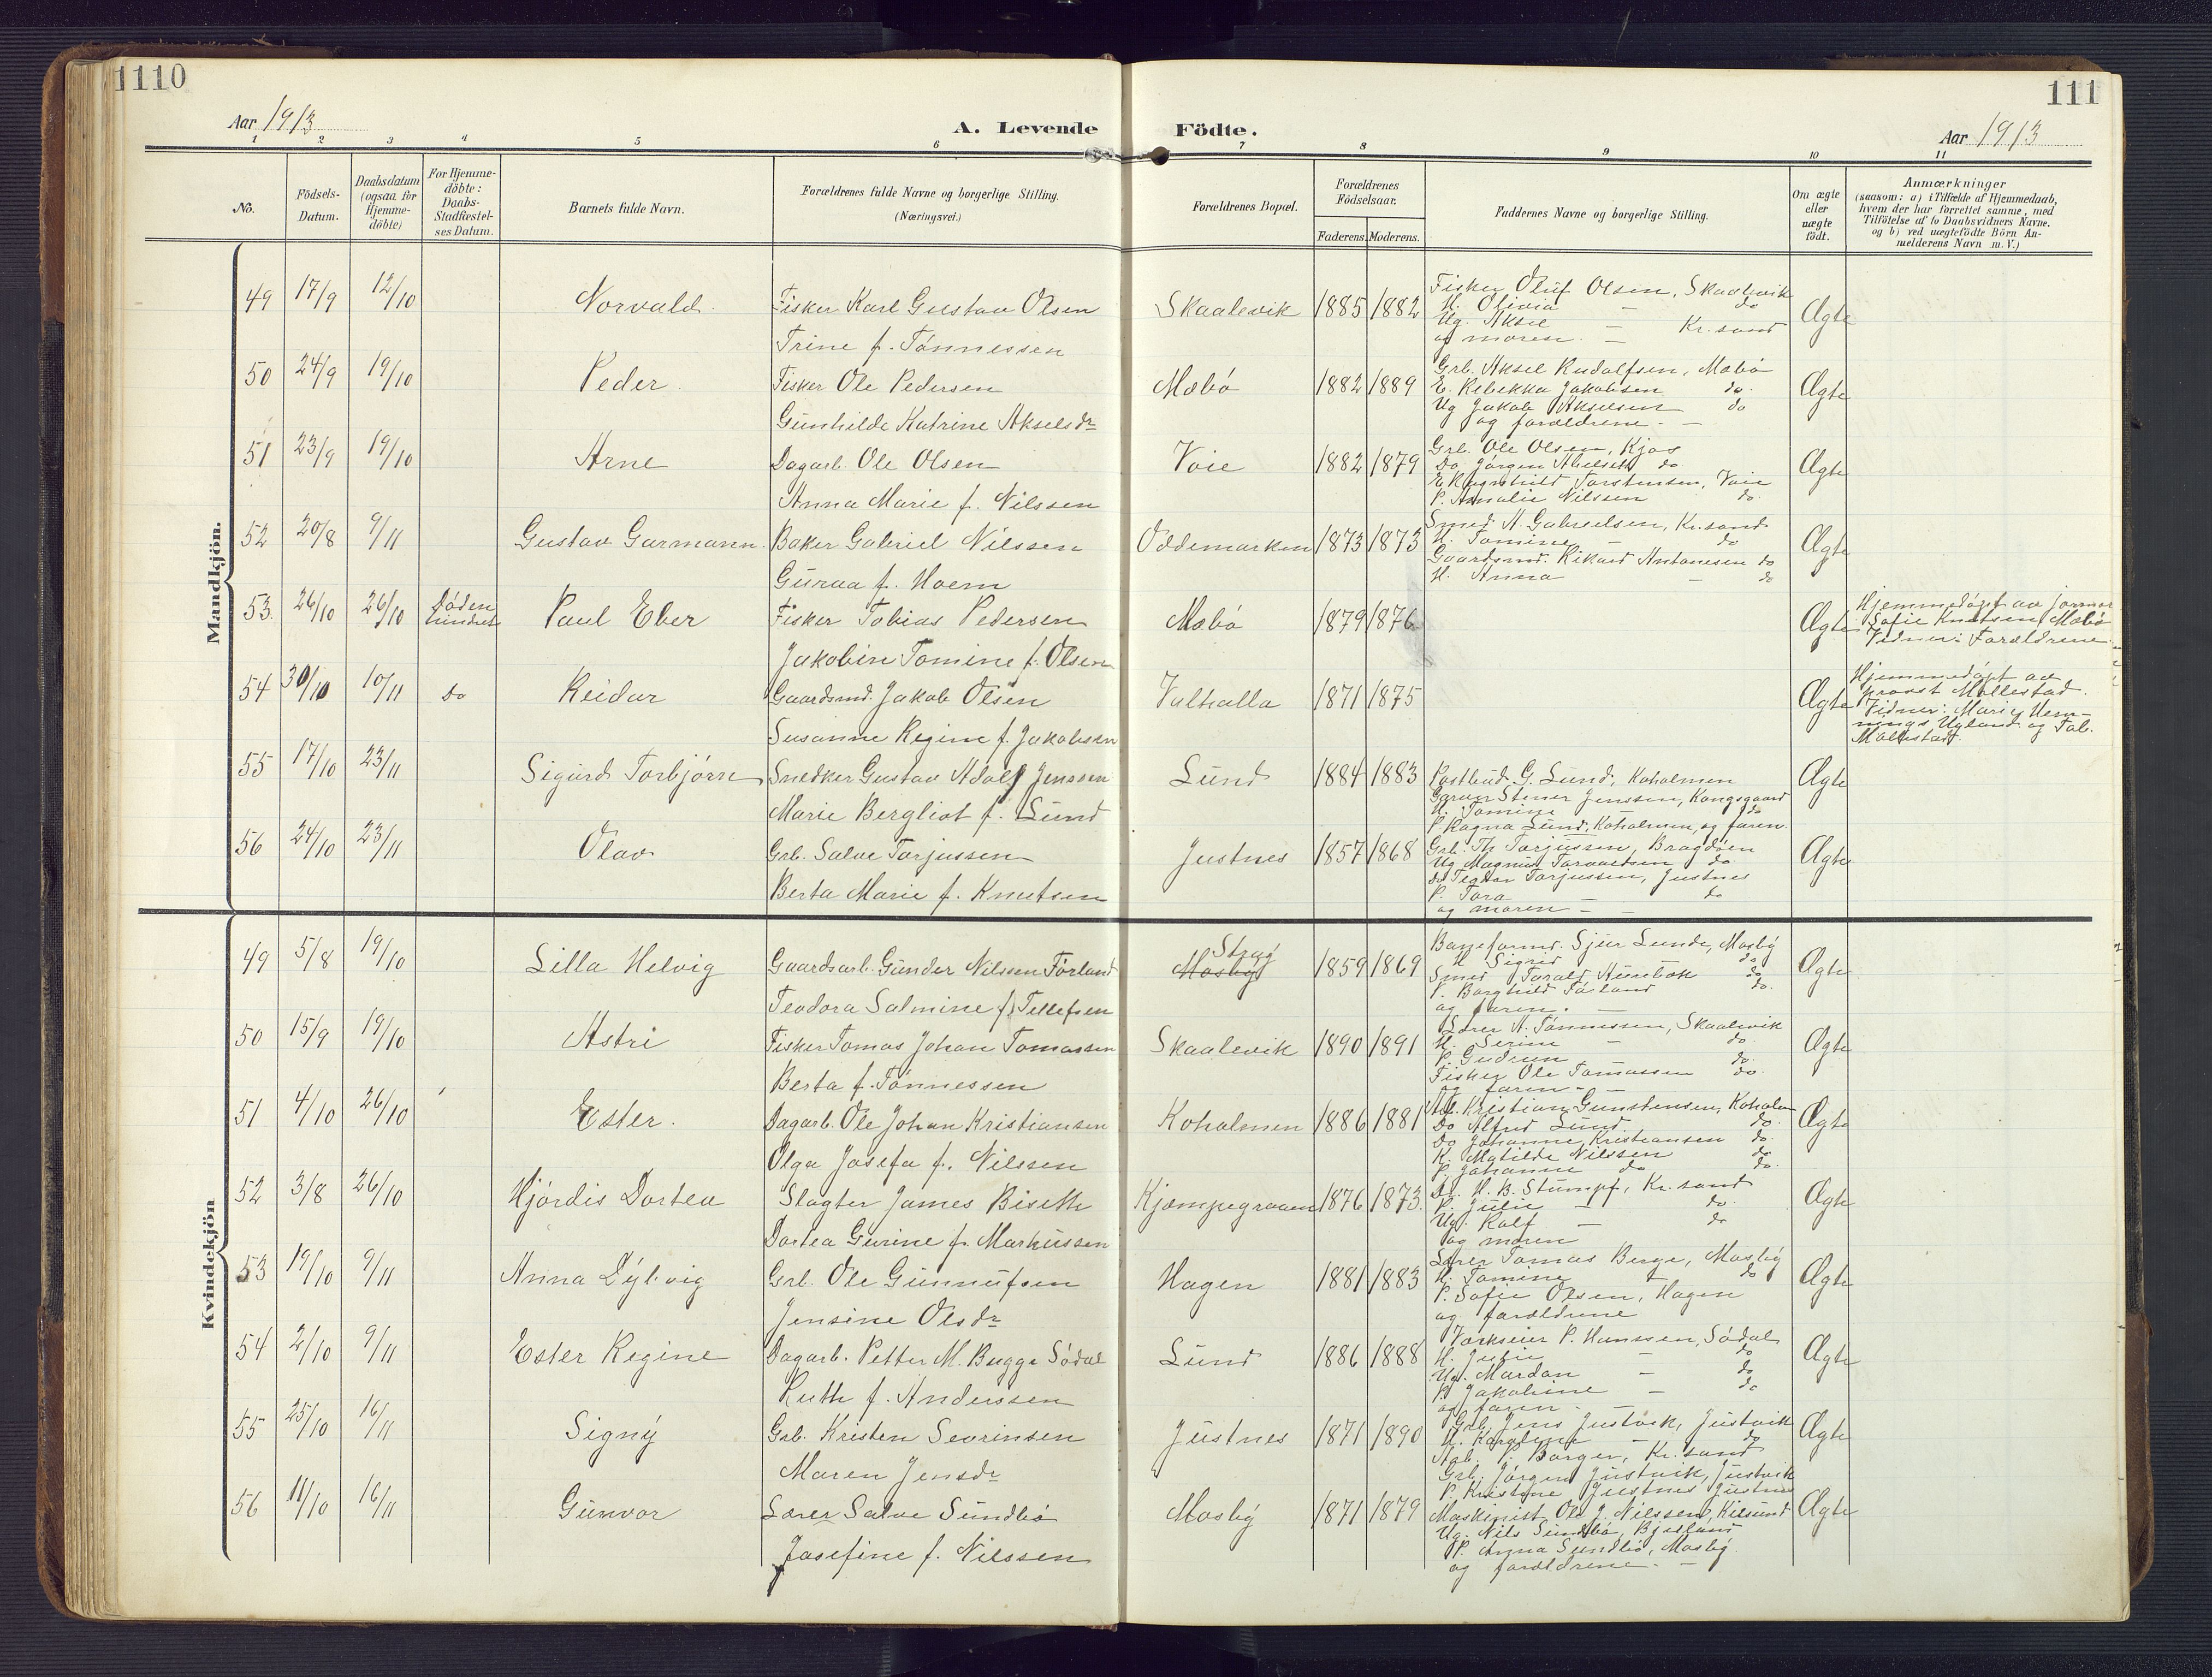 1110
111
Aar 1913
A. Levende
Födte.
Aar 1913
1 2 3 4 5 6 7 8 9 10 11
No.
Födsels-
Datum.
Daabsdatum
(ogsaa for
Hjemme-
döbte)
For Hjemme-
döbte:
Daabs-
Stadfæstel-
ses Datum.
Barnets fulde Navn.
Forældrenes fulde Navne og borgerlige Stilling.
(Næringsvei.)
Forældrenes Bopæl.
Forældrenes
Födselsaar.
Faderens.
Moderens.
Faddernes Navne og borgerlige Stilling.
Om ægte
eller
uægte
födt.
Anmærkninger
(saasom: a) i Tilfælde af Hjemmedaab,
hvem der har forrettet samme, med
Tilföielse af to Daabsvidners Navne.
og b) ved uægtefödte Börn An-
melderens Navn m. V.)
Mandkjön.
49 17/9 12/10 Norvald. Fisker Karl Gustav Olsen
Trine f. Tönnessen
Skaalevik 1885 1882
Fisker Oluf Olsen, Skaalevik
H. Olivia — do
Ug. Aksel — Kr.sand
og moren. —
Ægte
50 24/9 19/10 Peder. Fisker Ole Pedersen
Gunhilde Katrine Akselsdr
Mæbö 1882 1889
Grb. Aksel Rudolfsen, Mæbö
E. Rebekka Jakobsen do.
Ug Jakob Akselsen do
og forældrene. —
Ægte
51 23/9 19/10 Arne Dagarb. Ole Olsen
Anna Marie f. Nilssen
Voie 1882 1879
Grb. Ole Olsen, Kjos
Do Jörgen do
E Ragnhild Torstensen, Voie
P. Amalie Nilssen do.
Ægte
52 20/8 9/11 Gustav Garmann. Baker Gabriel Nilssen
Guraa f. Hoem
Oddemarken 1873 1873
Smed A. Gabrielsen, Kr.sand
H. Tomine — do
Gaardsmd. Rikard Antonesen do
H. Anna — do
Ægte
53. 26/10 26/10 Döden
hindret
Paul Eber Fisker Tobias Pedersen
Jakobin Tomine f. Olsen
Mæbö 1879 1876
Ægte
Hjemmedöpt av jormor
Sofie Knutsen, Mæbö
Vidner: Forældrene.
54 30/10 10/11 Do Reidar Gaardsmd. Jakob Olsen
Susanne Regine f. Jakobsen
Valhalla 1871 1875
Ægte
Hjemmedöpt av
provst Möllestad.
Vidner: Marie Hem-
nings Ugland og Tob.
Möllestad.
55 17/10 23/11 Sigurd Torbjörn Snedker Gustav Adolf Jenssen
Marie Bergliot f. Lund
Lund 1884 1883
Postbud G. Lund, Koholmen
Garver Stener Jenssen, Kongsgaard
H. Tomine — do
P Ragna Lund, Koholmen, og faren.
Ægte
56 24/10 23/11 Olav Grb. Salve Tarjussen
Berta Marie f. Knutsen
Justnes 1857 1868
Grb. Th Tarjussen, Bragdöen
Ug Magnus do.
do Teodor Tarjussen, Justnes
P. Tora — do
og moren —
Ægte
Kvindekjön
49 5/8 19/10 Lilla Helvig Gaardsarb. Gunder Nilssen Förland
Teodora Salmine f. Tellefsen
Strag
Mosby
1859 1869
Baneformd. Sjur Lunde, Mosby
H Sigrid — do
Smed Torald do
P. Borghild Förland do.
og faren. —
Ægte
50 15/9 19/10 Astri Fisker Tomas Johan Tomassen
Berta f. Tönnessen
Skaalevik 1890 1891
Lærer A. Tönnessen, Skaalevik
H. Serine — do.
P. Gudrun — do.
Fisker Ole Tomassen do.
og faren — —
Ægte
51 4/10 26/10 Ester. Dagarb. Ole Johan Kristiansen
Olga Josefa f. Nilssen
Koholmen 1886 1881
Kristian Gunstensen, Koholm
Do Alfred Lund do.
Do Johanne Kristiansen do.
K. Matilde Nilssen do
P. Johanne do do.
Ægte
52 3/8 26/10 Hjördis Dortea Slagter James Biseth
Dortea Gurine f. Markussen
Kjæmpegraven 1876 1873.
H. B. Stumpf, Kr.sand
P. Julie — do.
Ug. Ralf — do
og moren
Ægte
53 19/10 9/11 Anna Dybvig Grb. Ole Gunnufsen
Jensine Olsdr
Hagen 1881 1883
Lærer Tomas Berge, Mosby
H. Tomine — do
P. Sofie Olsen, Hagen
og forældrene
Ægte
54 2/10 9/11 Ester Regine Dagarb. Petter M. Bugge Södal
Ruth f. Anderssen
Lund 1886 1888
Værkseier P. Hanssen, Södal
H. Julie — do
Ug. Mardon — do
P Jakobine — do
og faren. —
Ægte
55 25/10 16/11 Signy Grb. Kristen Sevrinsen
Maren Jensdr
Justnes 1871 1890
Grb. Jens Justvik, Justvik
H. Karoline — do
Borger, Kr.sand
Grb. Jörgen Justvik, Justvik
P. Kristine Justnes Justnes
Ægte
56 11/10 16/11 Gunvor Lærer Salve Sundbö
Josefine f. Nilssen
Mosby 1871 1879
Maskinist Ole J. Nilssen, Kilsund
Ug. Nils Sundbö, Bjelland
P. Anna Sundbö, Mosby.
og forældrene. —
Ægte